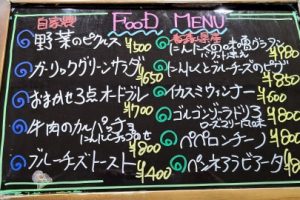 FOOD MENU
自家製
野菜のピクルス ¥500
ガーリックグリーンサラダ ¥650
おまかせ3点オードブル ¥700
牛肉のカルパッチョ
にんにく
¥800
ブルーチーズトースト ¥400
青森県産
にんにくの
にんにくとブルーチーズのピザ ¥850
イカスミウィンナー ¥600
ゴルゴンゾーラドリア ¥800
ペペロンチーノ
ペンネアラビアータ